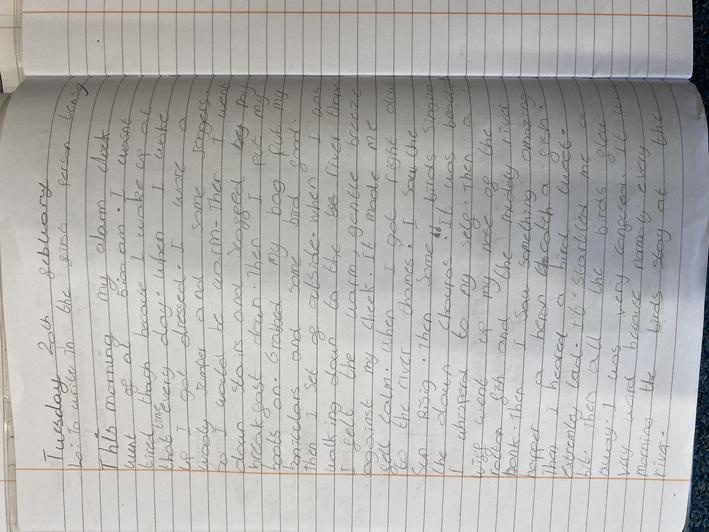 Tuesday 20th febuary
to write in the first person tense
This morning my alarm clock
went of at I wasnt
tired though because I wake up at
that time every day. when I wake
up I got dressed. I wore a
wooly Jumper and some Joggers
so I would be warm. Then I went
down stairs and my
breakfast down. Then I put my
boots on. Grabbed my bag put my
and some bird food.
then I set of outside. when I was
walking down to the river thames
I felt the warm, gentle breeze
against my cheek. It made me
feel calm. when I got right down
to the river thames. I saw the
sun rising. then some birds singing
the down chouros. it was
I whisperd to my self. Then a
wiff went up my nose of the
rotton fish and the muddy river
bank. Then I saw something amazing
happen a heron catch a fish.
Then I heared a bird tweet.
extremly loud. it startled me a
bit. Then all the birds flew
away. I was very confused. It was
very weird because every
morning the birds stay at the
river.